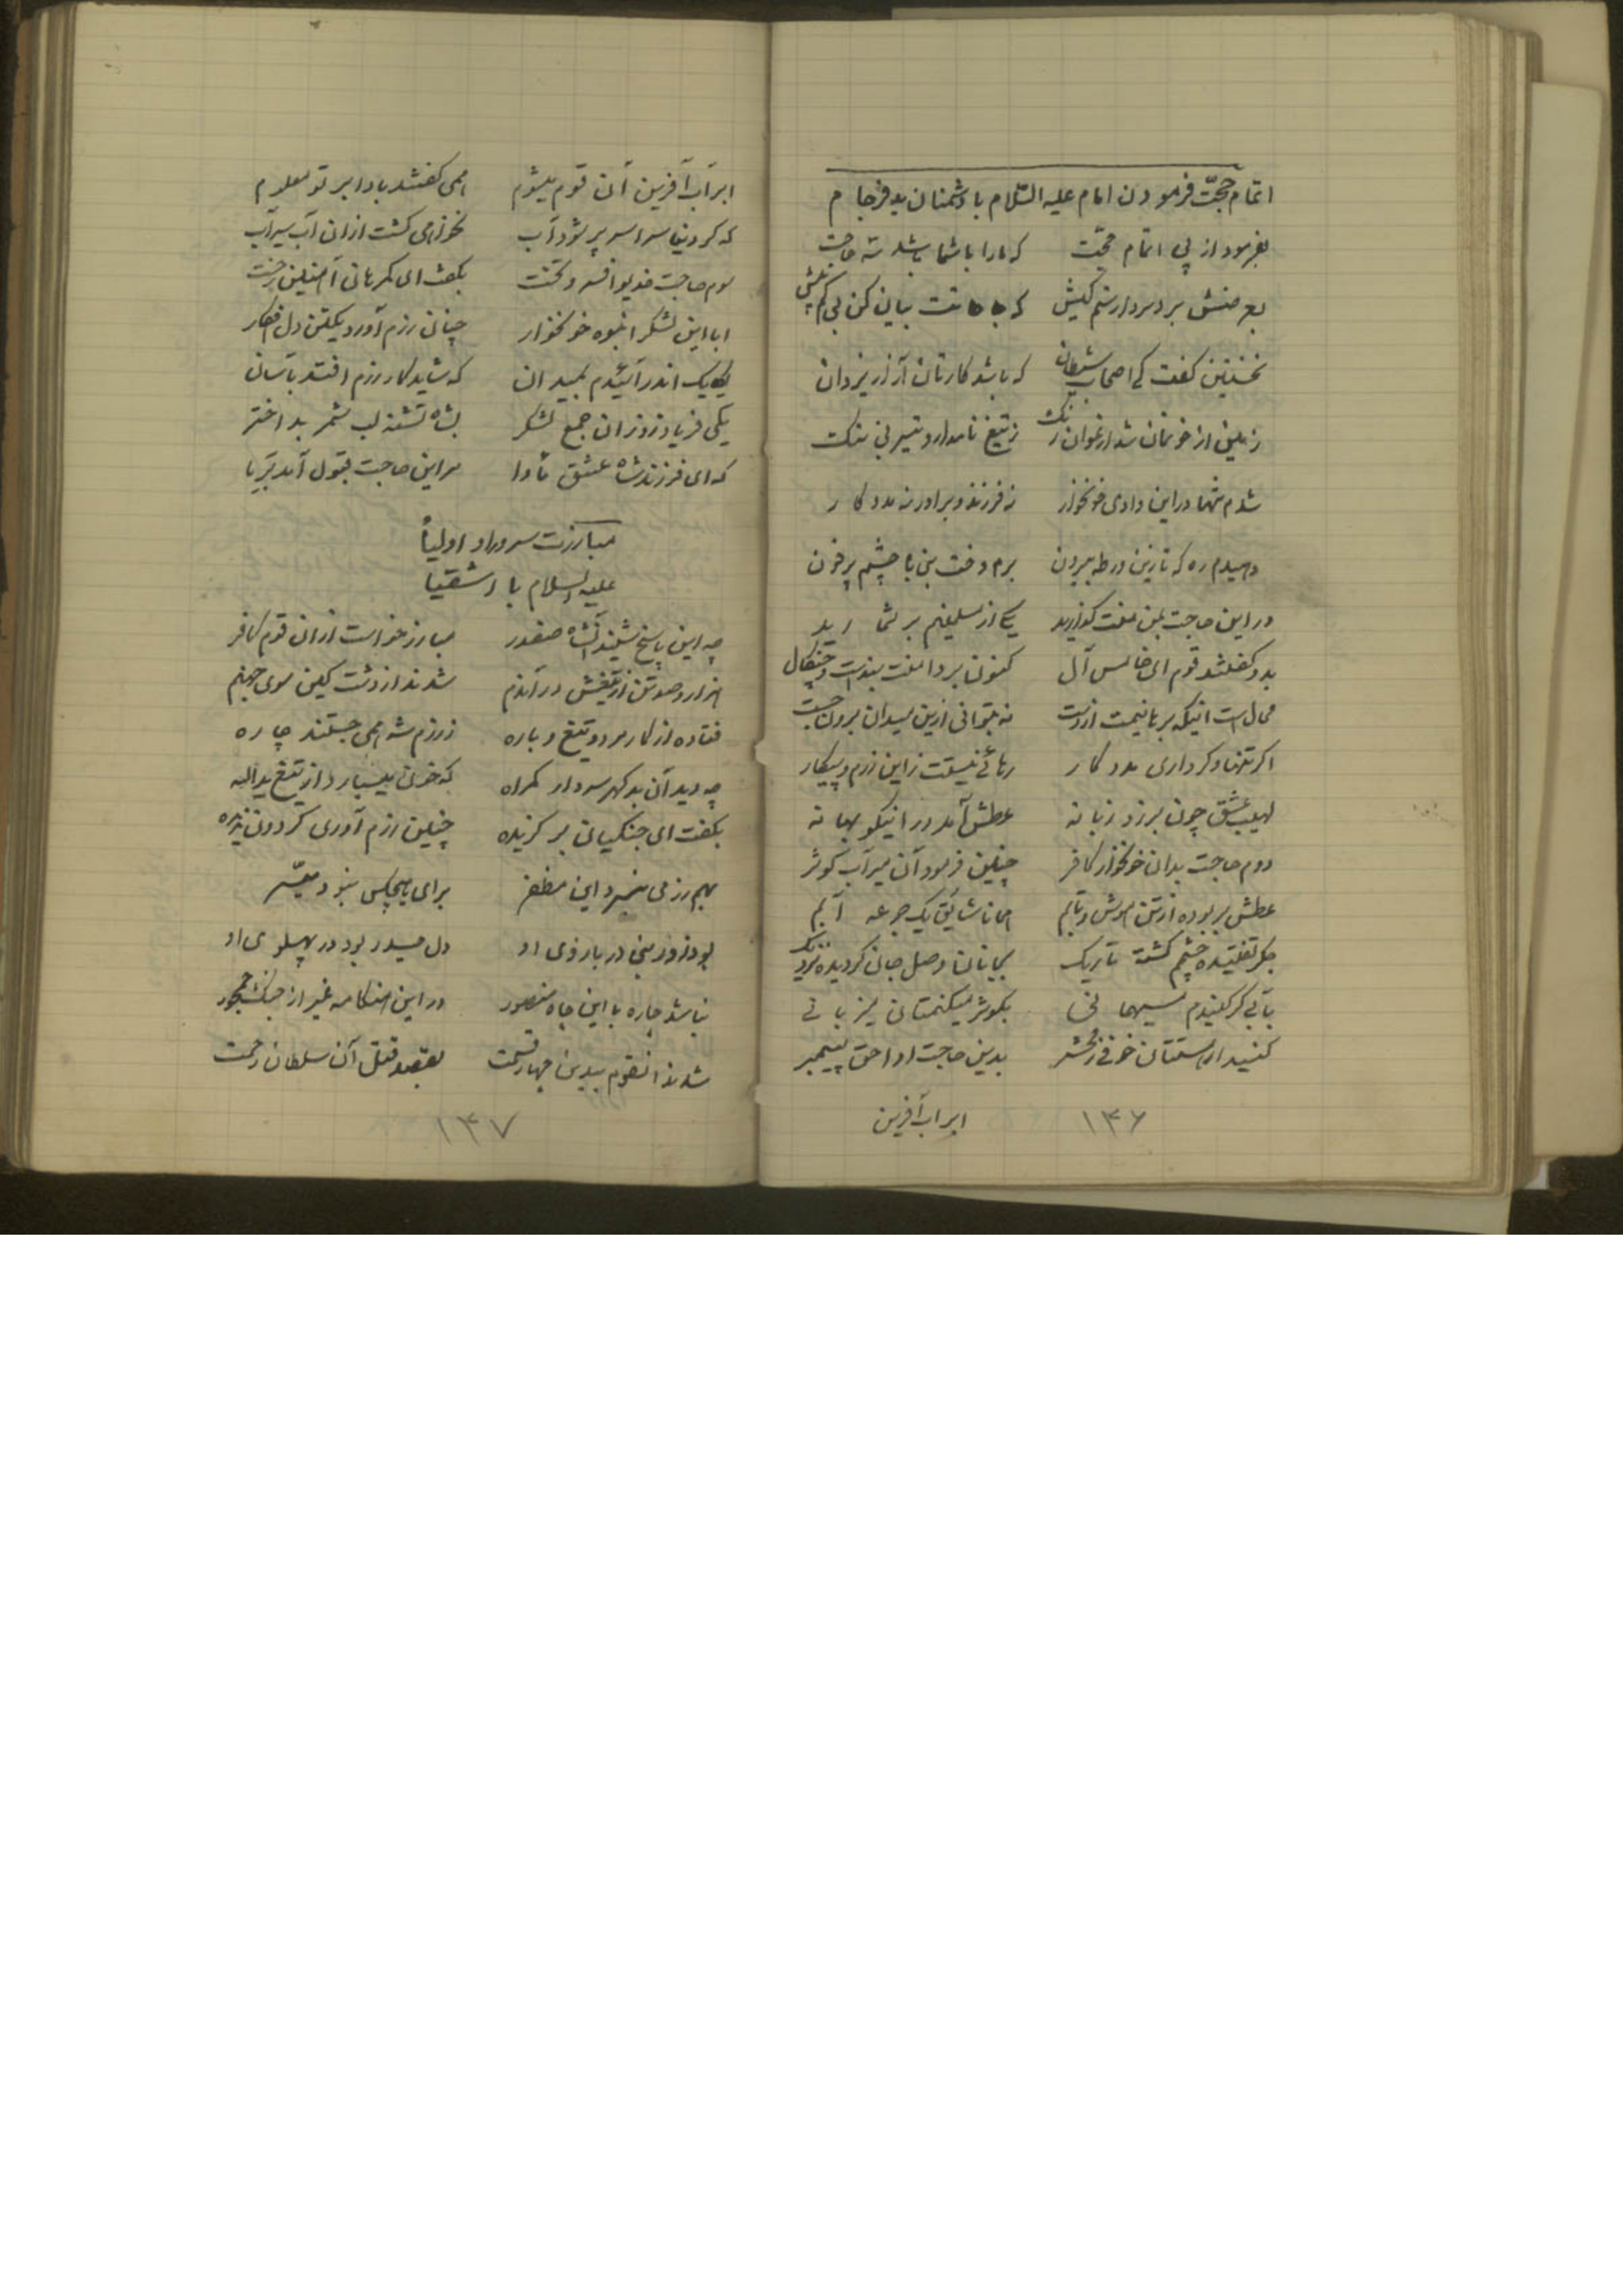 اتمام حجّت فرمودن امام علیه السّلام با دشمنان بدفرجام
بفرمود از پی اتمام حجّت که ما را با شما باشد سه حاجت
بعرضش بر دسردار ستم کیش که حاجاتت بیان کن بی کم بیش
نخستین گفت کی اصحاب شیطان که باشد کارتان آزار یزدان
زمین از خونمان شد ارغوان رنگ ز تیغ نامدار و تیر بی ننگ
شدم تنها در این وادی خونخوار نه فرزند و برادر نه مددکار
دهیدم ره که تا زین ورطه بیرون برم دخت نبی با چشم پر خون
در این حاجت بمن منت گذارید
بدو گفتند قوم ای خامس آل کنون بر دامنت بندست و چنگال
محال است اینکه برهانیمت از دست نه بتوانی ازین میدان برون جست
اگر تنها و گر داری مددکار رهائی نیستت زاین رزم و پیکار
لهیب عشق چون برزد زبانه عطش آمد در اینکو بهانه
دوم حاجت بدان خونخوار کافر چنین فرمود آن میر آب کوثر
عطش بربوده از تن هوش و تابم همانا شایق یک جرعه آبم
جگر تفتیده چشم گشته تاریک بجانان وصل جان گردیده نزدیک
بآبی گر کنیدم میهمانی بکوثر میکنمتان میزبانی
کنید ار مستتان خوفی ز محشر بدین حاجت ادا حق پیمبر
ابر آب آفرین
۱۳۶
ابر آب آفرین آن قوم میشوم همی گفتند بادا بر تو معلوم
که گر دنیا سراسر پر شود آب نخواهی گشت از ان آب سیرآب
سوم حاجت خدیو افسر و تخت بگفت ای گمرهان آهنین رخت
ابا این لشکر انبوه خونخوار چنان رزم آورد یکتن دل فکار
یکایک اندر آئیدم بمیدان که شاید کار رزم افتد بآسان
یکی فریاد زد زان جمع لشکر بشاه تشنه لب شمر بداختر
که ای فرزند شاه عشق مأوا مر این حاجت قبول آمد ز برپا
مبارزت سرور اولیأ
علیه السلام با اشقیا
چه این پاسخ شنید آنشاه صفدر مبارز خواست از ان قوم کافر
هزار و صد تن از تیغش در آندم شدند از دشت کین سوی جهنم
فتاده از کار مرد و تیغ و باره ز رزم شه همی جستند چاره
چه دید آن بدگهر سردار گمراه که خون میبارد از تیغ یداله
بگفت ای جنگیان بر گزیده چنین رزم آوری گردون ندیده
بهم رزمی نبرد این مظفر برای هیچکس نبود میسّر
بود زور نبی در بازوی او دل حیدر بود در پهلوی او
نباشد چاره با این جاه منصور در این هنگامه غیر از جنگ مجبور
شدند انقوم بیدین چهار قسمت بقصد قتل آن سلطان رحمت
۱۳۷